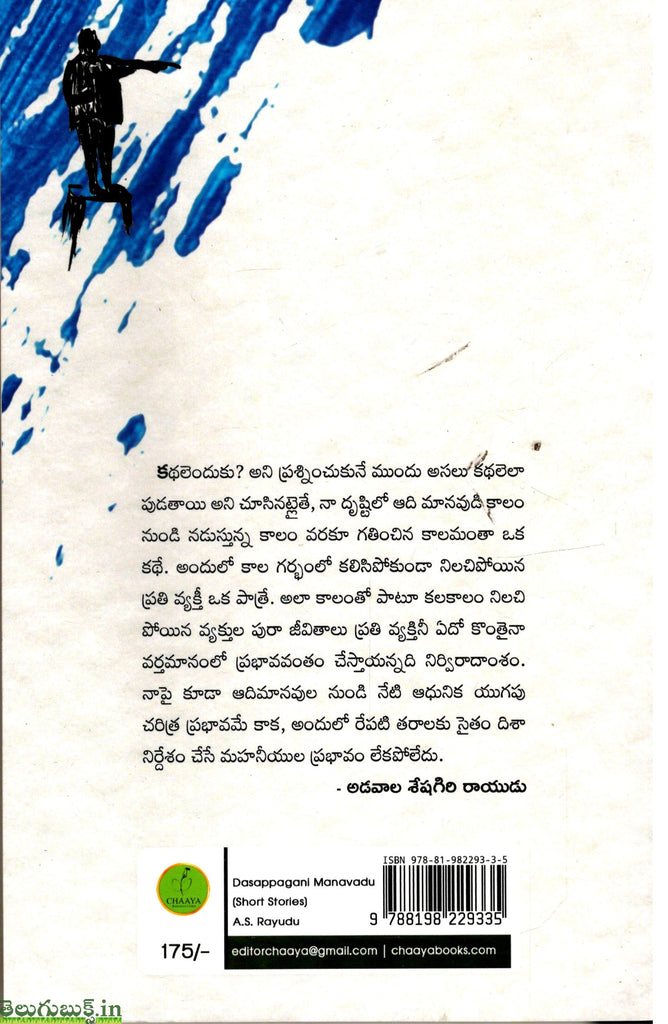 కథలెందుకు? అని ప్రశ్నించుకునే ముందు అసలు కథలెలా
పుడతాయి అని చూసినట్లైతే, నా దృష్టిలో ఆది మానవుడి కాలం
నుండి నడుస్తున్న కాలం వరకూ గతించిన కాలమంతా ఒక
కథే. అందులో కాల గర్భంలో కలిసిపోకుండా నిలచిపోయిన
ప్రతి వ్యక్తీ ఒక పాత్రే. అలా కాలంతో పాటూ కలకాలం నిలచి
పోయిన వ్యక్తుల పురా జీవితాలు ప్రతి వ్యక్తినీ ఏదో కొంతైనా
వర్తమానంలో ప్రభావవంతం చేస్తాయన్నది నిర్విరాదాంశం.
నాపై కూడా ఆదిమానవుల నుండి నేటి ఆధునిక యుగపు
చరిత్ర ప్రభావమే కాక, అందులో రేపటి తరాలకు సైతం దిశా
నిర్దేశం చేసే మహనీయుల ప్రభావం లేకపోలేదు.
- అడవాల శేషగిరి రాయుడు
ISBN 978-81-982293-3-5
CHAAYA
Dasappagani Manavadu
(Short Stories)
A.S. Rayudu
9 788198 229335
175/-
editorchaaya@gmail.com | chaayabooks.com
తెలుగుబుక్స్.in